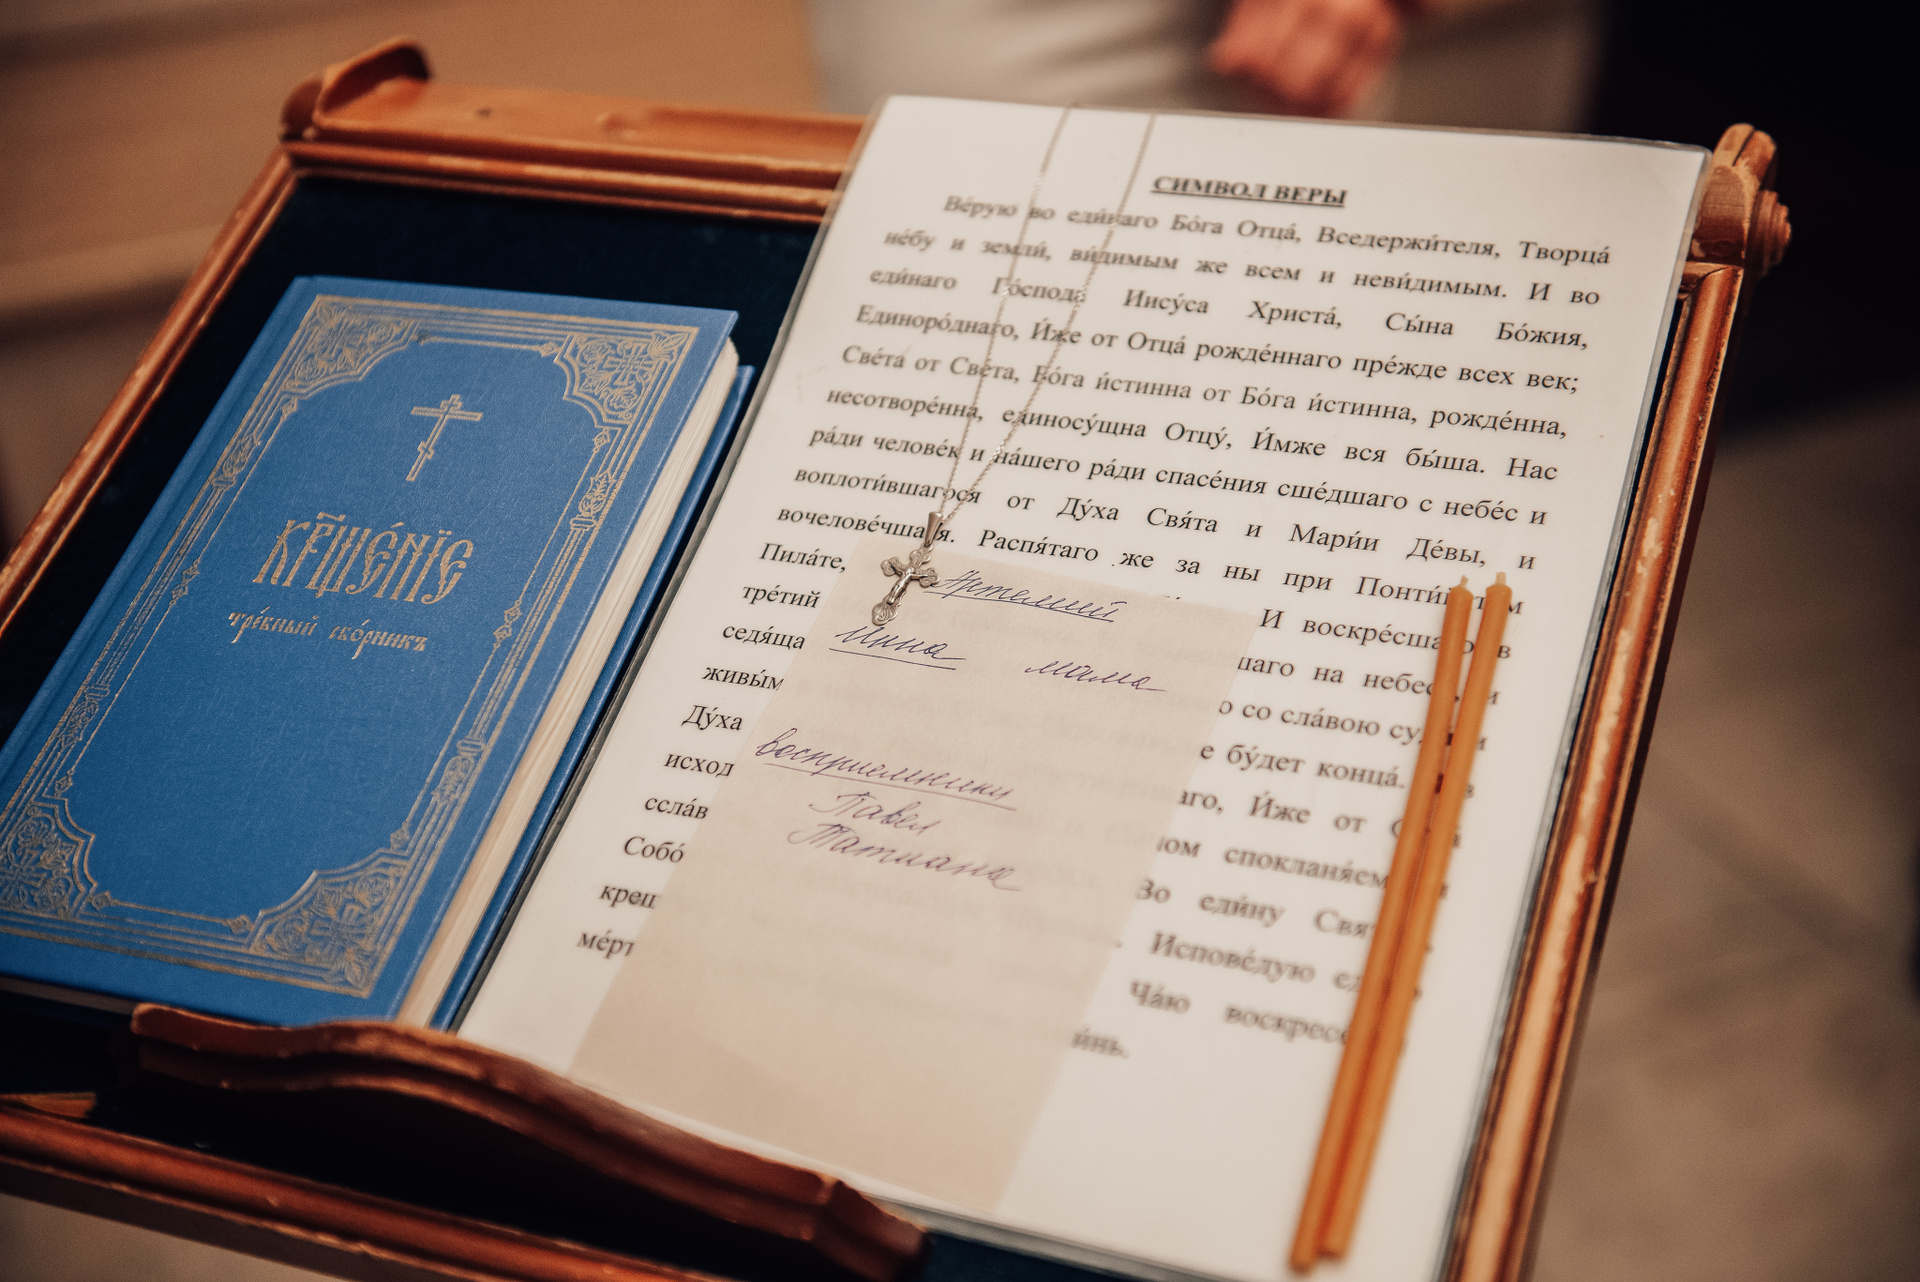 КР҃ЩЕ́НЇЕ
тре́бный сбо́рникъ
СИМВОЛ ВЕРЫ
Ве́рую во еди́наго Бо́га Отца́, Вседержи́теля, Творца́
не́бу и земли́, ви́димым же всем и неви́димым. И во
еди́наго Го́спода Иису́са Христа́, Сы́на Бо́жия,
Единоро́днаго, И́же от Отца́ рожде́ннаго пре́жде всех век;
Све́та от Све́та, Бо́га и́стинна от Бо́га и́стинна, рожде́нна,
несотворе́нна, единосу́щна Отцу́, И́мже вся бы́ша. Нас
ра́ди челове́к и на́шего ра́ди спасе́ния сше́дшаго с небе́с и
воплоти́вшагося от Ду́ха Свя́та и Мари́и Де́вы, и
вочелове́чшася. Распя́таго же за ны при Понти́йстем
Пила́те, И воскре́сшаго в
тре́тий шаго на небеса, и
седя́ща о со сла́вою суди́ти
живы́м е бу́дет конца́. в
Ду́ха аго, И́же от Отца
исход ном спокланя́ема и
ссла́в Во еди́ну Свя
Собо́ Испове́дую ед
крещ Ча́ю воскресе
ме́рт и́нь.
Артемий
Инна мама
восприемники
Павел
Татиана